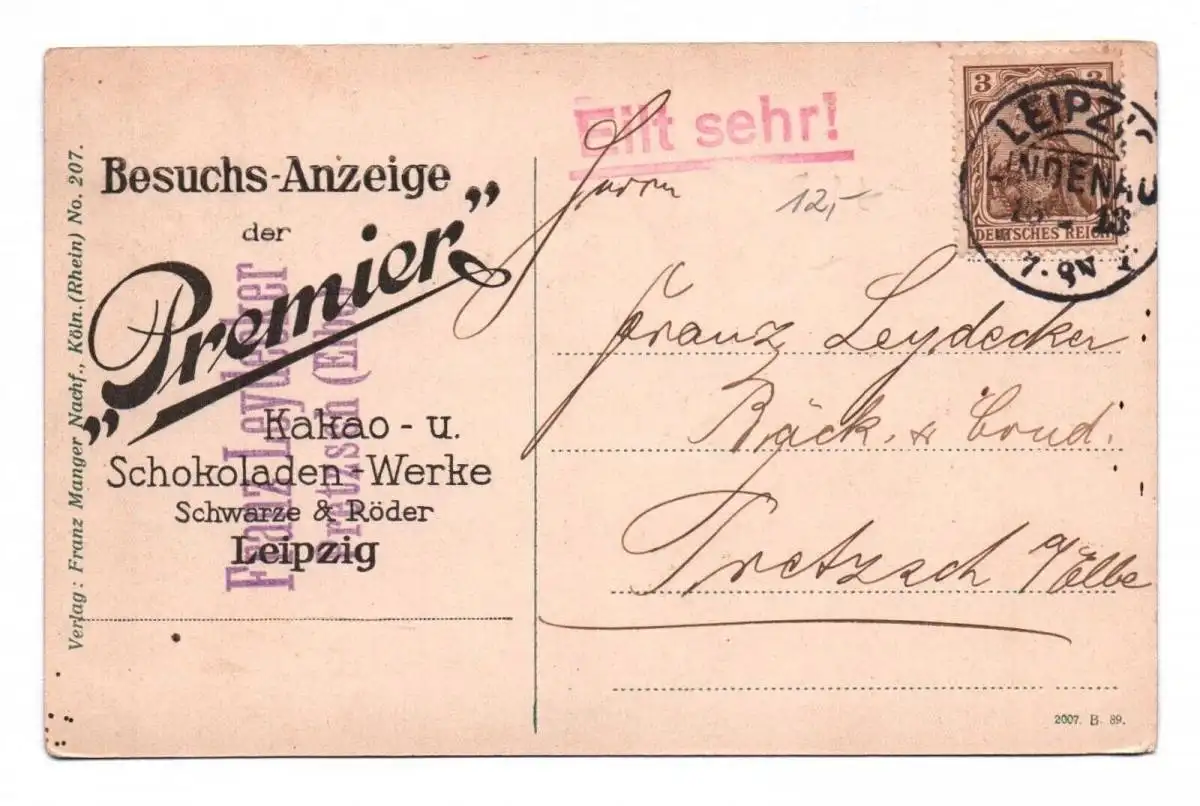 Verlag: Franz Manger Nachf., Köln. (Rhein) No. 207.
Besuchs-Anzeige
der
„Premier"
Kakao - u.
Schokoladen-Werke
Schwarze & Röder
Leipzig
Franz Leydecker
Pretzsch (Elbe)
Eilt sehr!
Herrn
12,-
Franz Leydecker
Bäck. & Cond.
Pretzsch
a/Elbe
3 3
DEUTSCHES REICH
LEIPZIG
LINDENAU
13
7. 8 N
2007. B. 89.